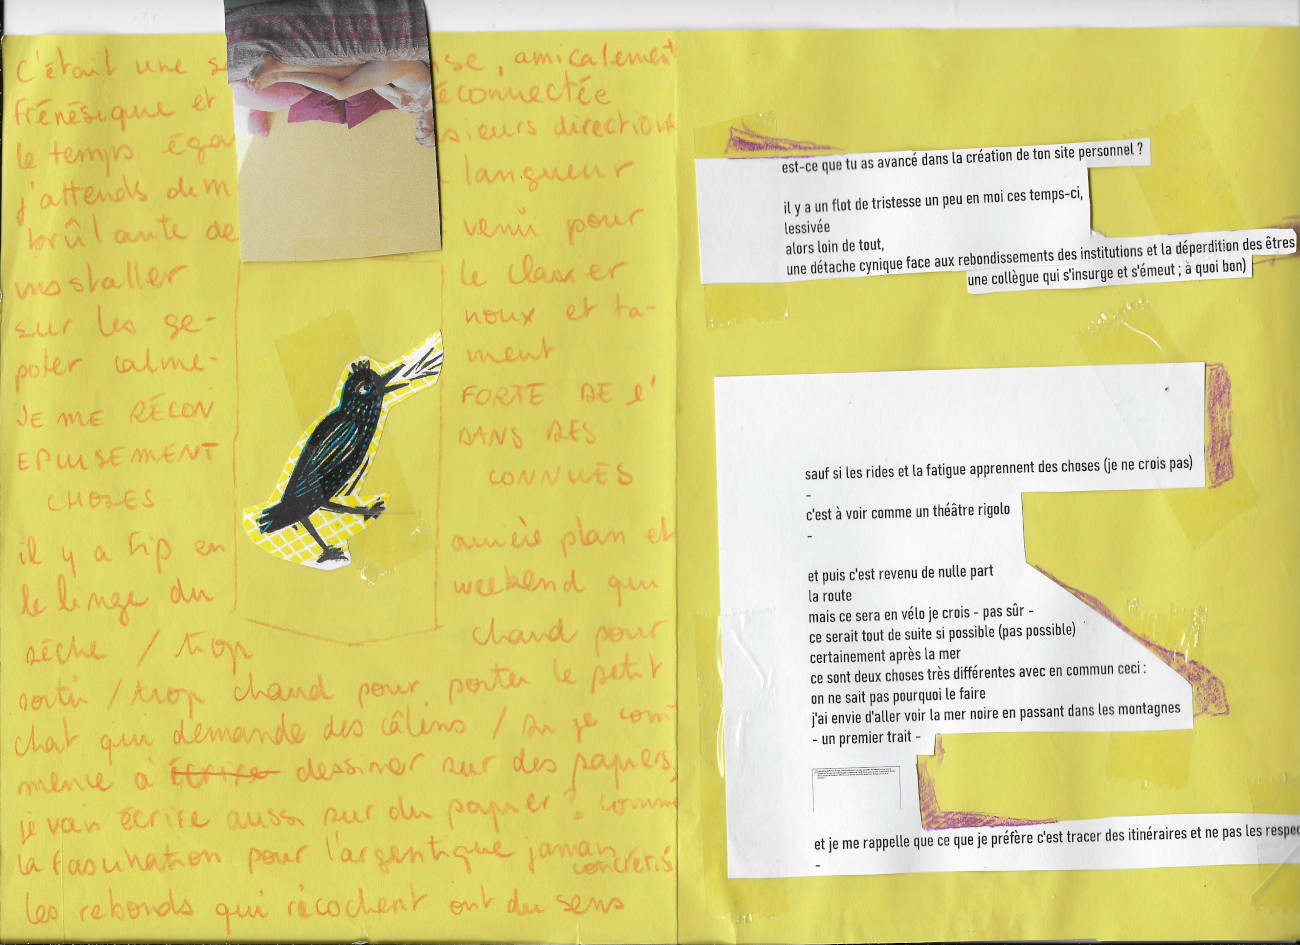 C'était une s se, amicalement
frénésique et éconnectée
le temps éga sieurs directions
j'attends dem langueur
brûlante de venir pour
installer le clavier
sur les ge- noux et ta-
poter calme- ment
JE ME RÉCON FORTE DE l'
EPUISEMENT DANS DES
CHOSES CONNUES
il y a Fip en arrière plan et
le linge du weekend qui
sèche / trop chaud pour
sortir / trop chaud pour porter le petit
chat qui demande des câlins / si je com-
mence à écrire dessiner sur des papiers,
je vais écrire aussi sur du papier ? comme
la fascination pour l'argentique jamais
concrétis
les rebonds qui ricochent ont du sens
est-ce que tu as avancé dans la création de ton site personnel ?
il y a un flot de tristesse un peu en moi ces temps-ci,
lessivée
alors loin de tout,
une détache cynique face aux rebondissements des institutions et la déperdition des êtres
une collègue qui s'insurge et s'émeut ; à quoi bon)
sauf si les rides et la fatigue apprennent des choses (je ne crois pas)
-
c'est à voir comme un théâtre rigolo
-
et puis c'est revenu de nulle part
la route
mais ce sera en vélo je crois - pas sûr -
ce serait tout de suite si possible (pas possible)
certainement après la mer
ce sont deux choses très différentes avec en commun ceci :
on ne sait pas pourquoi le faire
j'ai envie d'aller voir la mer noire en passant dans les montagnes
- un premier trait -
et je me rappelle que ce que je préfère c'est tracer des itinéraires et ne pas les respec
-